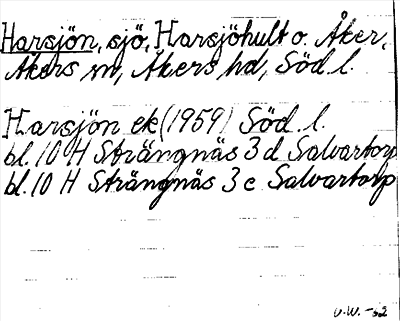 Harsjön, sjö, Harsjöhult o. Åker,
Åkers sn, Åkers hd, Söd. l.
Harsjön ek (1959) Söd. l.
bl. 10 H Strängnäs 3 d Salvartorp
bl. 10 H Strängnäs 3 e Salvartorp